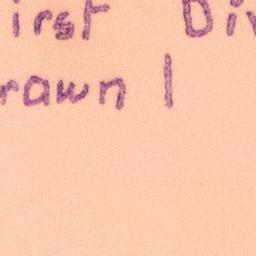 irst Di
rawn |